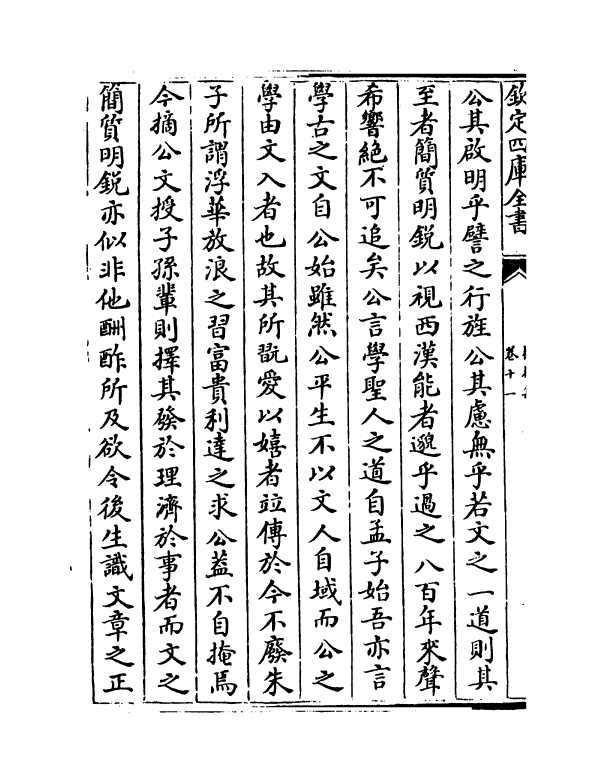 欽定四庫全書
卷十一
公其啟明乎譬之行旌公其慮無乎若文之一道則其
至者簡質明銳以視西漢能者邈乎過之八百年來聲
希響絕不可追矣公言學聖人之道自孟子始吾亦言
學古之文自公始雖然公平生不以文人自域而公之
學由文入者也故其所翫愛以嬉者竝傳於今不廢朱
子所謂浮華放浪之習富貴利達之求公葢不自掩焉
今摘公文授子孫輩則擇其發於理濟於事者而文之
簡質明銳亦似非他酬酢所及欲令後生識文章之正